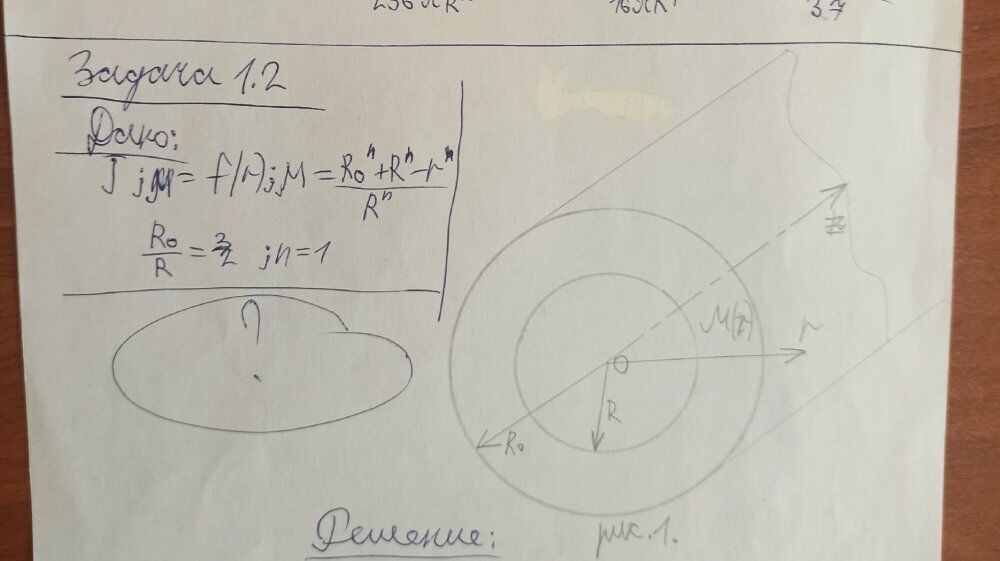 16πR⁴
37
Задача 1.2
Дано:
J ; μ = f(r); μ = R₀ⁿ+Rⁿ-rⁿ
Rⁿ
R₀/R = 3/2 ; n=1
?
μ(r)
r
O
R
R₀
Решение:
рис. 1.